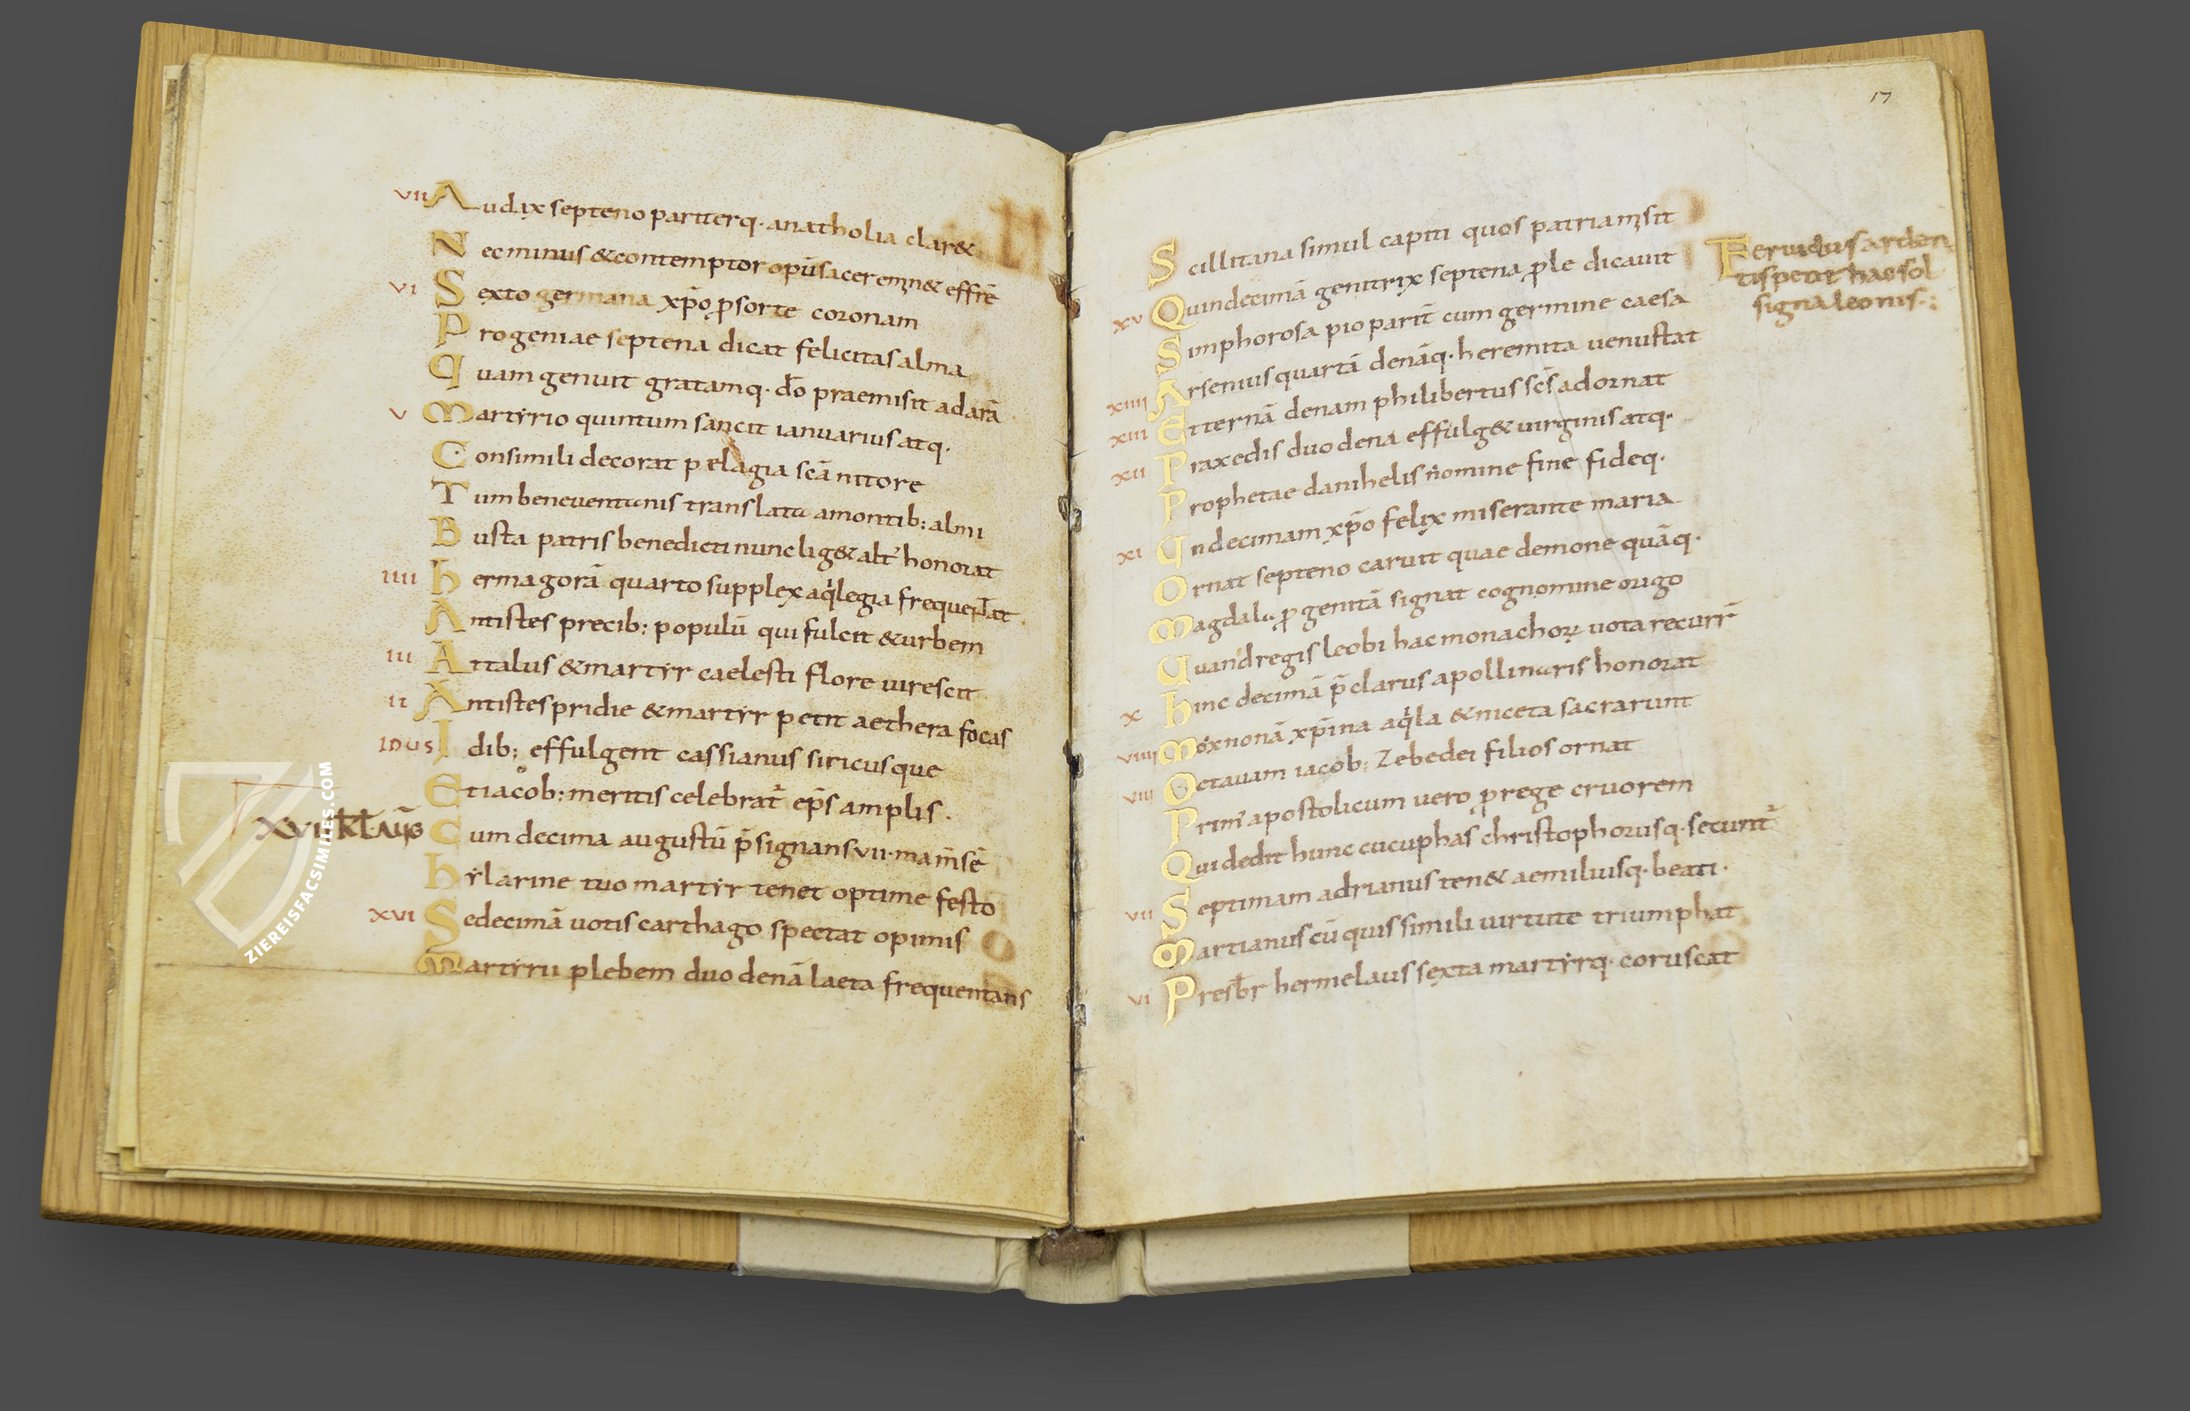 VII Audax septeno pariterq· anatholia clar&
Nec minus & contemptor opū sacer emȩn& effrē
VI Sexto germana xp̄o p̱ sorte coronam
Progeniae septena dicat felicitas alma
Quam genuit gratamq· dō praemisit ad arā
V Martyrio quintum sancit ianuarius atq·
Consimili decorat pelagia scā nitore
Tum beneventanis translata a montib; almi
Busta patris benedicti nunc lig& alt honorat
IIII hermagorā quarto supplex aqlegia frequentat
Antistes precib; populū qui fulcit & urbem
III Attalus & martyr caelesti flore uirescit
II Antistes pridie & martyr petit aethera focas
IDUS Idib; effulgent cassianus siricusque
Et iacob; meritis celebrat eps amplis·
XVII KL AUG Cum decima augustū p̄signans VII·
hylarine tuo martyr tenet optime festo
XVI Sedecimā uotis carthago spectat opimis
Martyru plebem duodenā laeta frequentans
17
Scillitana simul capiti quos patria
XV Quindecimā genitrix septena ꝓle dicauit
Simphorosa pio parit cum germine caesa
XIIII Arsenius quartā denāq· heremita uenustat
XIII Etternā denam philibertus scs adornat
XII Praxedis duodena effulg& uirginis atq·
Prophetae danihelis nomine fine fideq·
XI Undecimam xp̄o felix miserante maria
Ornat septeno caruit quae demone quāq·
Magdalu ꝓgenitā signat cognomine origo
Quandregis leobi hac monachoꝝ uota recurr
X hinc decimā p̄clarus apollinaris honorat
VIIII Mox nonā xp̄ina aqla & niceta sacrarunt
VIII Octauam iacob; Zebedei filios ornat
Prim apostolicum uero ꝓ rege cruorem
Qui dedit hunc cucuphas christophorusq· secunt
VII Septimam adrianus ten& aemiliusq· beati·
Martianus cū quis simili uirtute triumphat
VI Presbr hermelaus sexta martyrq· coruscat
Feruidus arden
tis petit hac sol
signa leonis·:
ZIEREISFACSIMILES.COM